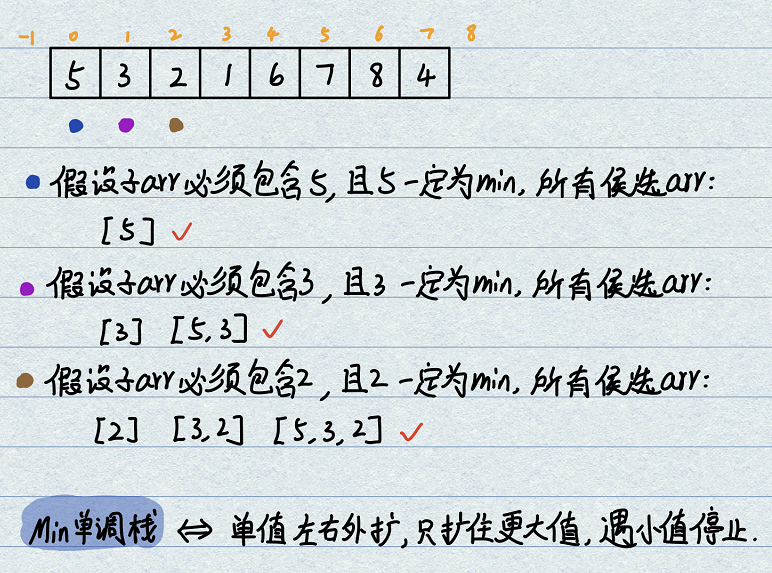 -1 0 1 2 3 4 5 6 7 8
5 3 2 1 6 7 8 4
假设子arr必须包含5,且5一定为min,所有侯选arr:
[5] ✓
假设子arr必须包含3,且3一定为min,所有侯选arr:
[3] [5,3] ✓
假设子arr必须包含2,且2一定为min,所有侯选arr:
[2] [3,2] [5,3,2] ✓
Min单调栈 ⇔ 单值左右外扩,只扩住更大值,遇小值停止.